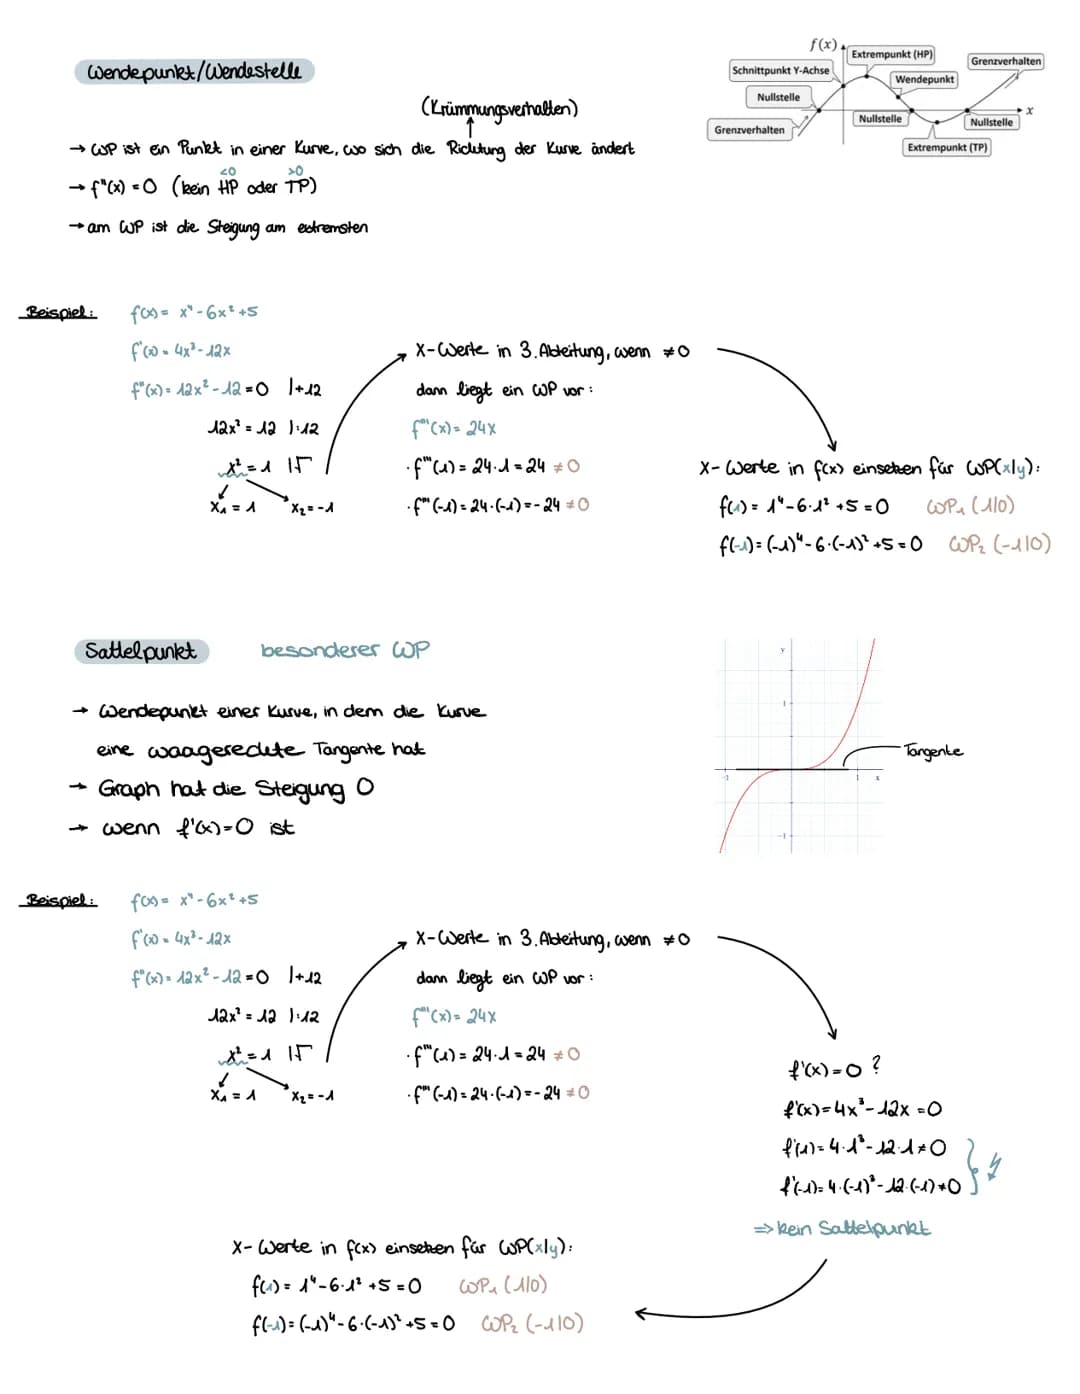 Wendepunkt/Wendestelle
f(x)
Extrempunkt (HP)
Grenzverhalten
Schnittpunkt Y-Achse
Wendepunkt
Nullstelle
x
Nullstelle
Nullstelle
Grenzverhalten
Extrempunkt (TP)
(Krümmungsverhalten)
→ WP ist ein Punkt in einer Kurve, wo sich die Richtung der Kurve ändert
<0 >0
→ f"(x) = 0 (kein HP oder TP)
→ am WP ist die Steigung am extremsten
Beispiel:
f(x) = x⁴ - 6x² + 5
f'(x) = 4x³ - 12x
f"(x) = 12x² - 12 = 0 |+12
12x² = 12 |:12
x² = 1 |√
x₁ = 1 x₂ = -1
X-Werte in 3. Ableitung, wenn ≠ 0
dann liegt ein WP vor:
f"'(x) = 24x
· f"'(1) = 24·1 = 24 ≠ 0
· f"'(-1) = 24·(-1) = -24 ≠ 0
X-Werte in f(x) einsetzen für WP(x|y):
f(1) = 1⁴ - 6·1² + 5 = 0 WP₁ (1|0)
f(-1) = (-1)⁴ - 6·(-1)² + 5 = 0 WP₂ (-1|0)
Sattelpunkt besonderer WP
→ Wendepunkt einer Kurve, in dem die Kurve
eine waagerechte Tangente hat
→ Graph hat die Steigung 0
→ wenn f'(x) = 0 ist
y
1
Tangente
-1
1
x
-1
Beispiel:
f(x) = x⁴ - 6x² + 5
f'(x) = 4x³ - 12x
f"(x) = 12x² - 12 = 0 |+12
12x² = 12 |:12
x² = 1 |√
x₁ = 1 x₂ = -1
X-Werte in 3. Ableitung, wenn ≠ 0
dann liegt ein WP vor:
f"'(x) = 24x
· f"'(1) = 24·1 = 24 ≠ 0
· f"'(-1) = 24·(-1) = -24 ≠ 0
f'(x) = 0 ?
f'(x) = 4x³ - 12x = 0
f'(1) = 4·1³ - 12·1 ≠ 0
f'(-1) = 4·(-1)³ - 12·(-1) ≠ 0
⇒ kein Sattelpunkt
X-Werte in f(x) einsetzen für WP(x|y):
f(1) = 1⁴ - 6·1² + 5 = 0 WP₁ (1|0)
f(-1) = (-1)⁴ - 6·(-1)² + 5 = 0 WP₂ (-1|0)